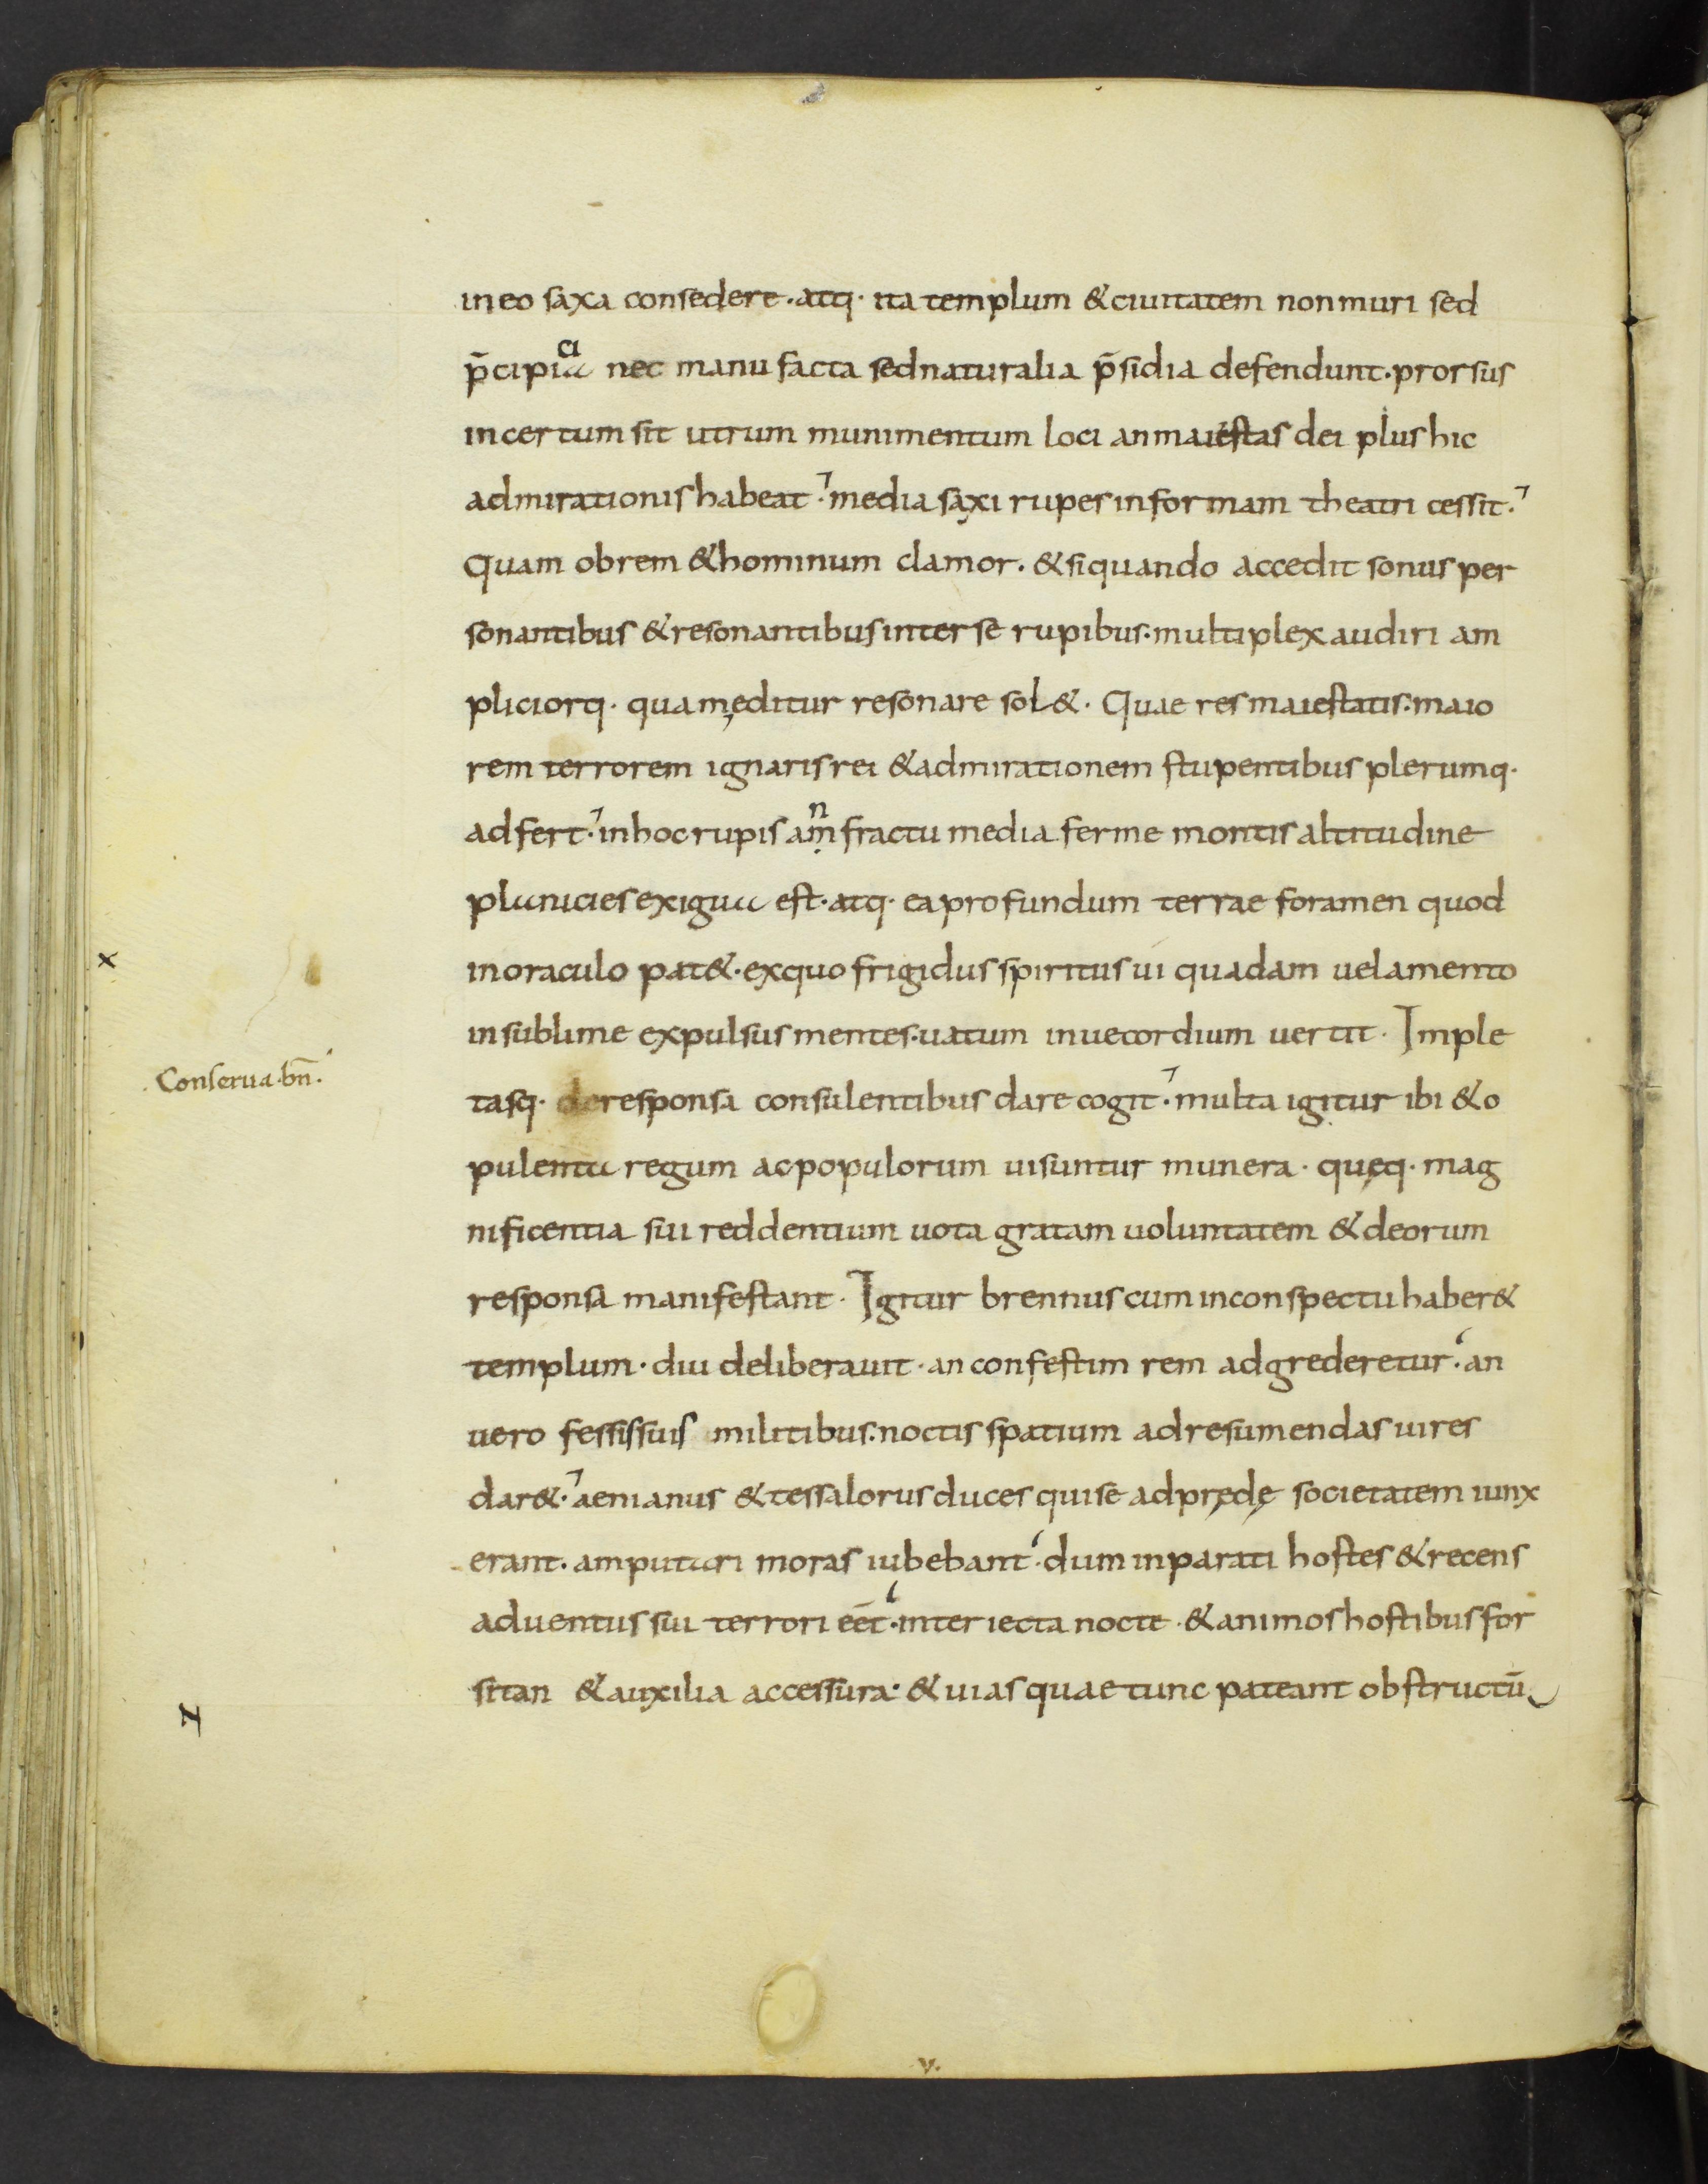 in eo saxa consedere. atq· ita templum & ciuitatem non muri sed
p̄cipicia nec manu facta sed naturalia p̄sidia defendunt. prorsus
incertum sit utrum munimentum loci an maiestas dei plus hic
admirationis habeat. media saxi rupes in formam theatri cessit.
Quam obrem & hominum clamor. & siquando accedit sonus per
sonantibus & resonantibus inter se rupibus. multiplex audiri am
pliciorq· quam ęditur resonare sol&. Quae res maiestatis. maio
rem terrorem ignaris rei & admirationem stupentibus plerumq·
adfert. in hoc rupis amnfractu media ferme montis altitudine
planicies exigua est. atq· ea profundum terrae foramen quod
in oraculo pat&. ex quo frigidus spiritus ui quadam uelamento
in sublime expulsus mentes. uatum in uecordium uertit. Imple
Conserua. bn̄.
tasq· de responsa consulentibus dare cogit. multa igitur ibi & o
pulenta regum ac populorum uisuntur munera. quęq· mag
nificentia sui reddentium uota gratam uoluntatem & deorum
responsa manifestant. Igitur brennus cum in conspectu haber&
templum. diu deliberauit. an confestim rem adgrederetur. an
uero fessis suis militibus. noctis spatium ad resumendas uires
dar&. aenianus & tessalorus duces qui se ad prędę societatem iunx
erant. amputari moras iubebant. dum inparati hostes & recens
aduentus sui terrori eēt. interiecta nocte. & animos hostibus for
sitan & auxilia accessura. & uias quae tunc pateant obstructū
v.